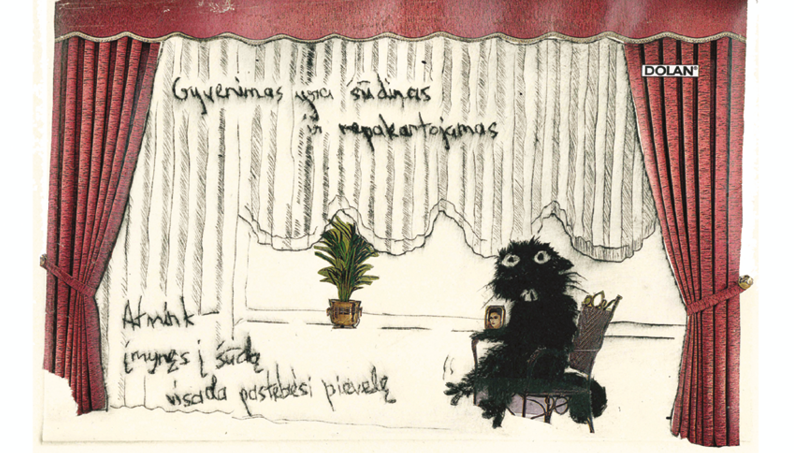 Gyvenimas yra šūdinas
ir nepakartojamas
DOLAN®
Atmink
įmynęs į šūdą
visada pastebėsi pievelę